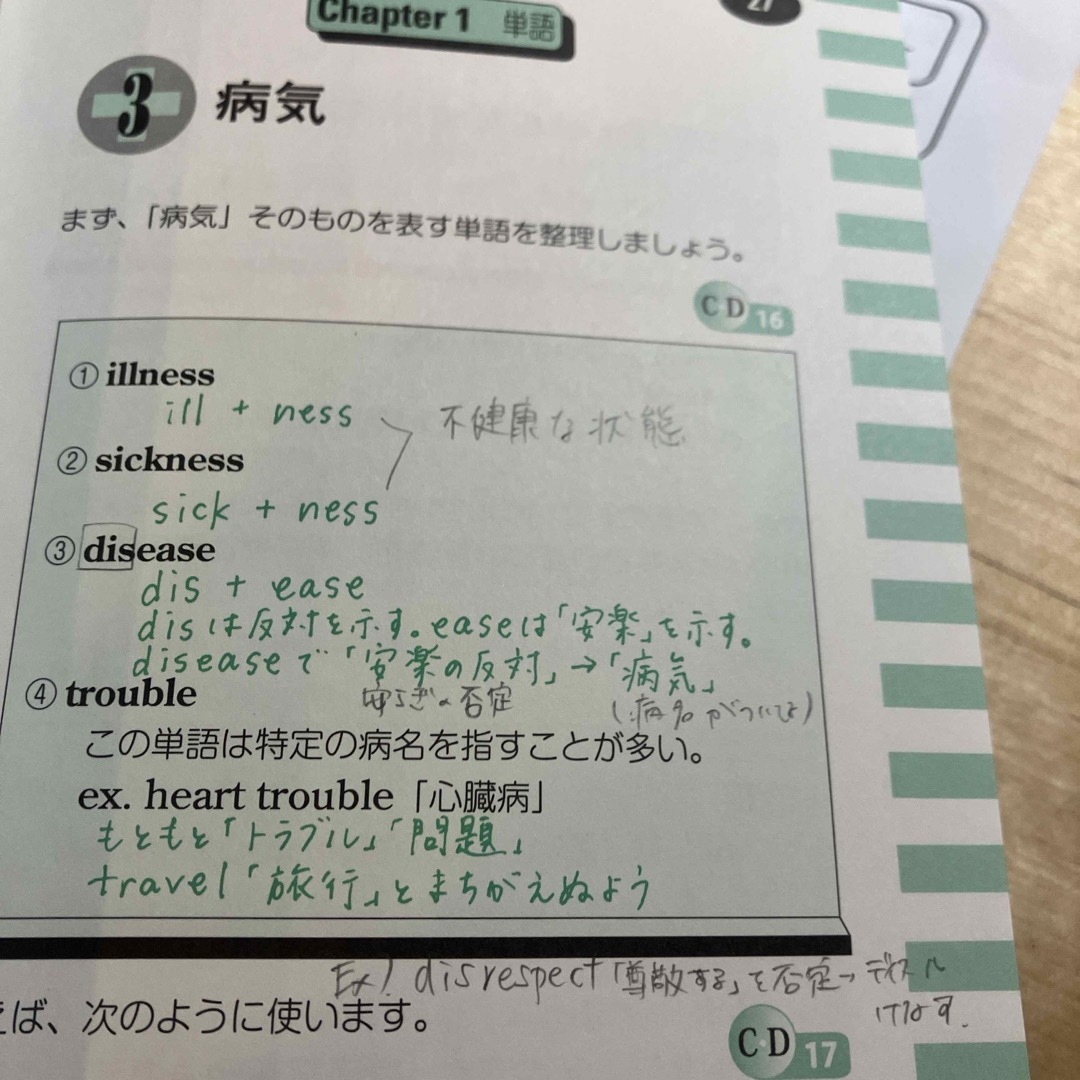 Chapter 1 単語
27
3 病気
まず、「病気」そのものを表す単語を整理しましょう。
CD 16
① illness
ill + ness
不健康な状態
② sickness
sick + ness
③ disease
dis + ease
disは反対を示す。easeは「安楽」を示す。
diseaseで「安楽の反対」→「病気」
安らぎの否定
④ trouble
この単語は特定の病名を指すことが多い。
ex. heart trouble「心臓病」
もともと「トラブル」「問題」
travel「旅行」とまちがえぬよう
Ex) disrespect「尊敬する」を否定→ディスル
けなす.
えば、次のように使います。
CD 17